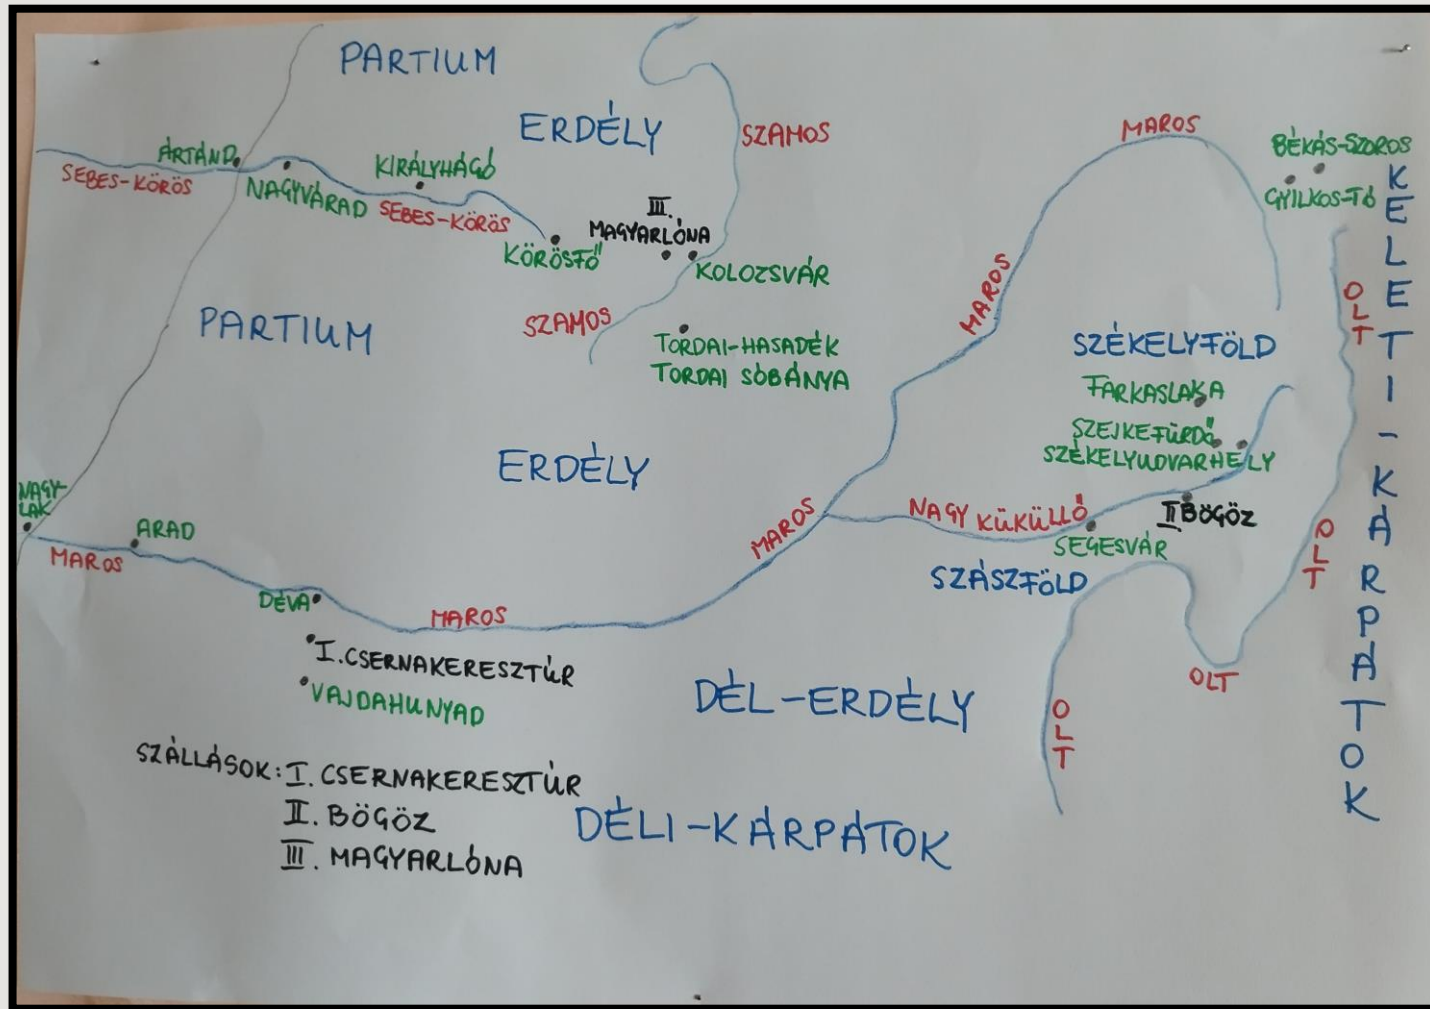 PARTIUM
ERDÉLY
SZAMOS
MAROS
BÉKÁS-SZOROS
GYILKOS-TÓ
ÁRTÁND
SEBES-KÖRÖS
NAGYVÁRAD
KIRÁLYHÁGÓ
SEBES-KÖRÖS
KÖRÖSFŐ
III.
MAGYARLÓNA
KOLOZSVÁR
SZAMOS
TORDAI-HASADÉK
TORDAI SÓBÁNYA
PARTIUM
MAROS
OLT
KELETI-KÁRPÁTOK
SZÉKELYFÖLD
FARKASLAKA
SZEJKEFÜRDŐ
SZÉKELYUDVARHELY
ERDÉLY
NAGY-
LAK
MAROS
ARAD
MAROS
NAGY KÜKÜLLŐ
II BÖGÖZ
SEGESVÁR
OLT
SZÁSZFÖLD
DÉVA
MAROS
I. CSERNAKERESZTÚR
VAJDAHUNYAD
DÉL-ERDÉLY
OLT
OLT
SZÁLLÁSOK: I. CSERNAKERESZTÚR
II. BÖGÖZ
III. MAGYARLÓNA
DÉLI-KÁRPÁTOK